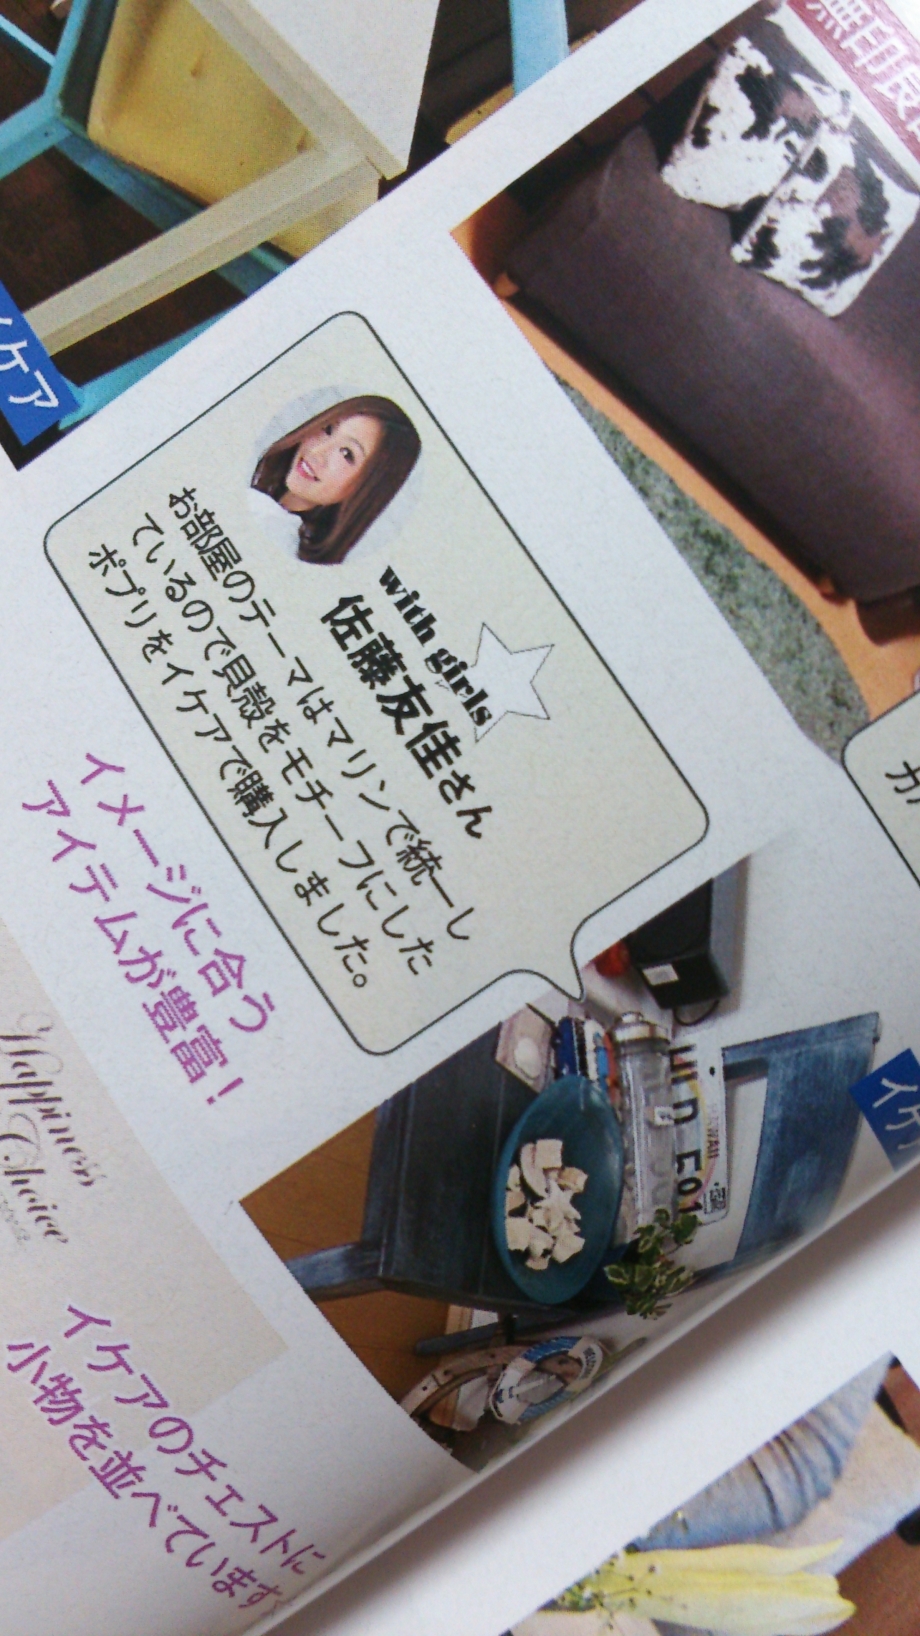 無印良
イケア
with girls
佐藤友佳さん
お部屋のテーマはマリンで統一し
ているので貝殻をモチーフにした
ポプリをイケアで購入しました。
イメージに合う
アイテムが豊富！
イケ
Happiness
Choice
イケアのチェストに
小物を並べています
カ